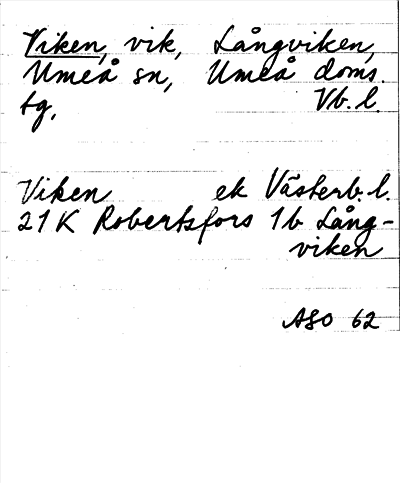 Viken, vik, Långviken,
Umeå sn, Umeå doms.
tg, Vb. l.
Viken ek Västerb. l.
21 K Robertsfors 1b Lång-
viken
ASO 62